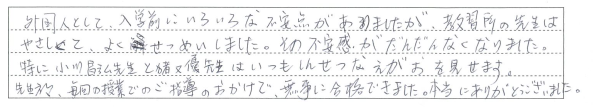 外国人として、入学前にいろいろな不安点がありましたが、教習所の先生は
やさしくて、よくせつめいしました。その不安感がだんだんなくなりました。
特に小川昌弘先生と緒又優先生はいつもしんせつなえがおを見せます。
先生方、毎回の授業でのご指導のおかげで、無事に合格できました。本当にありがとうございました。